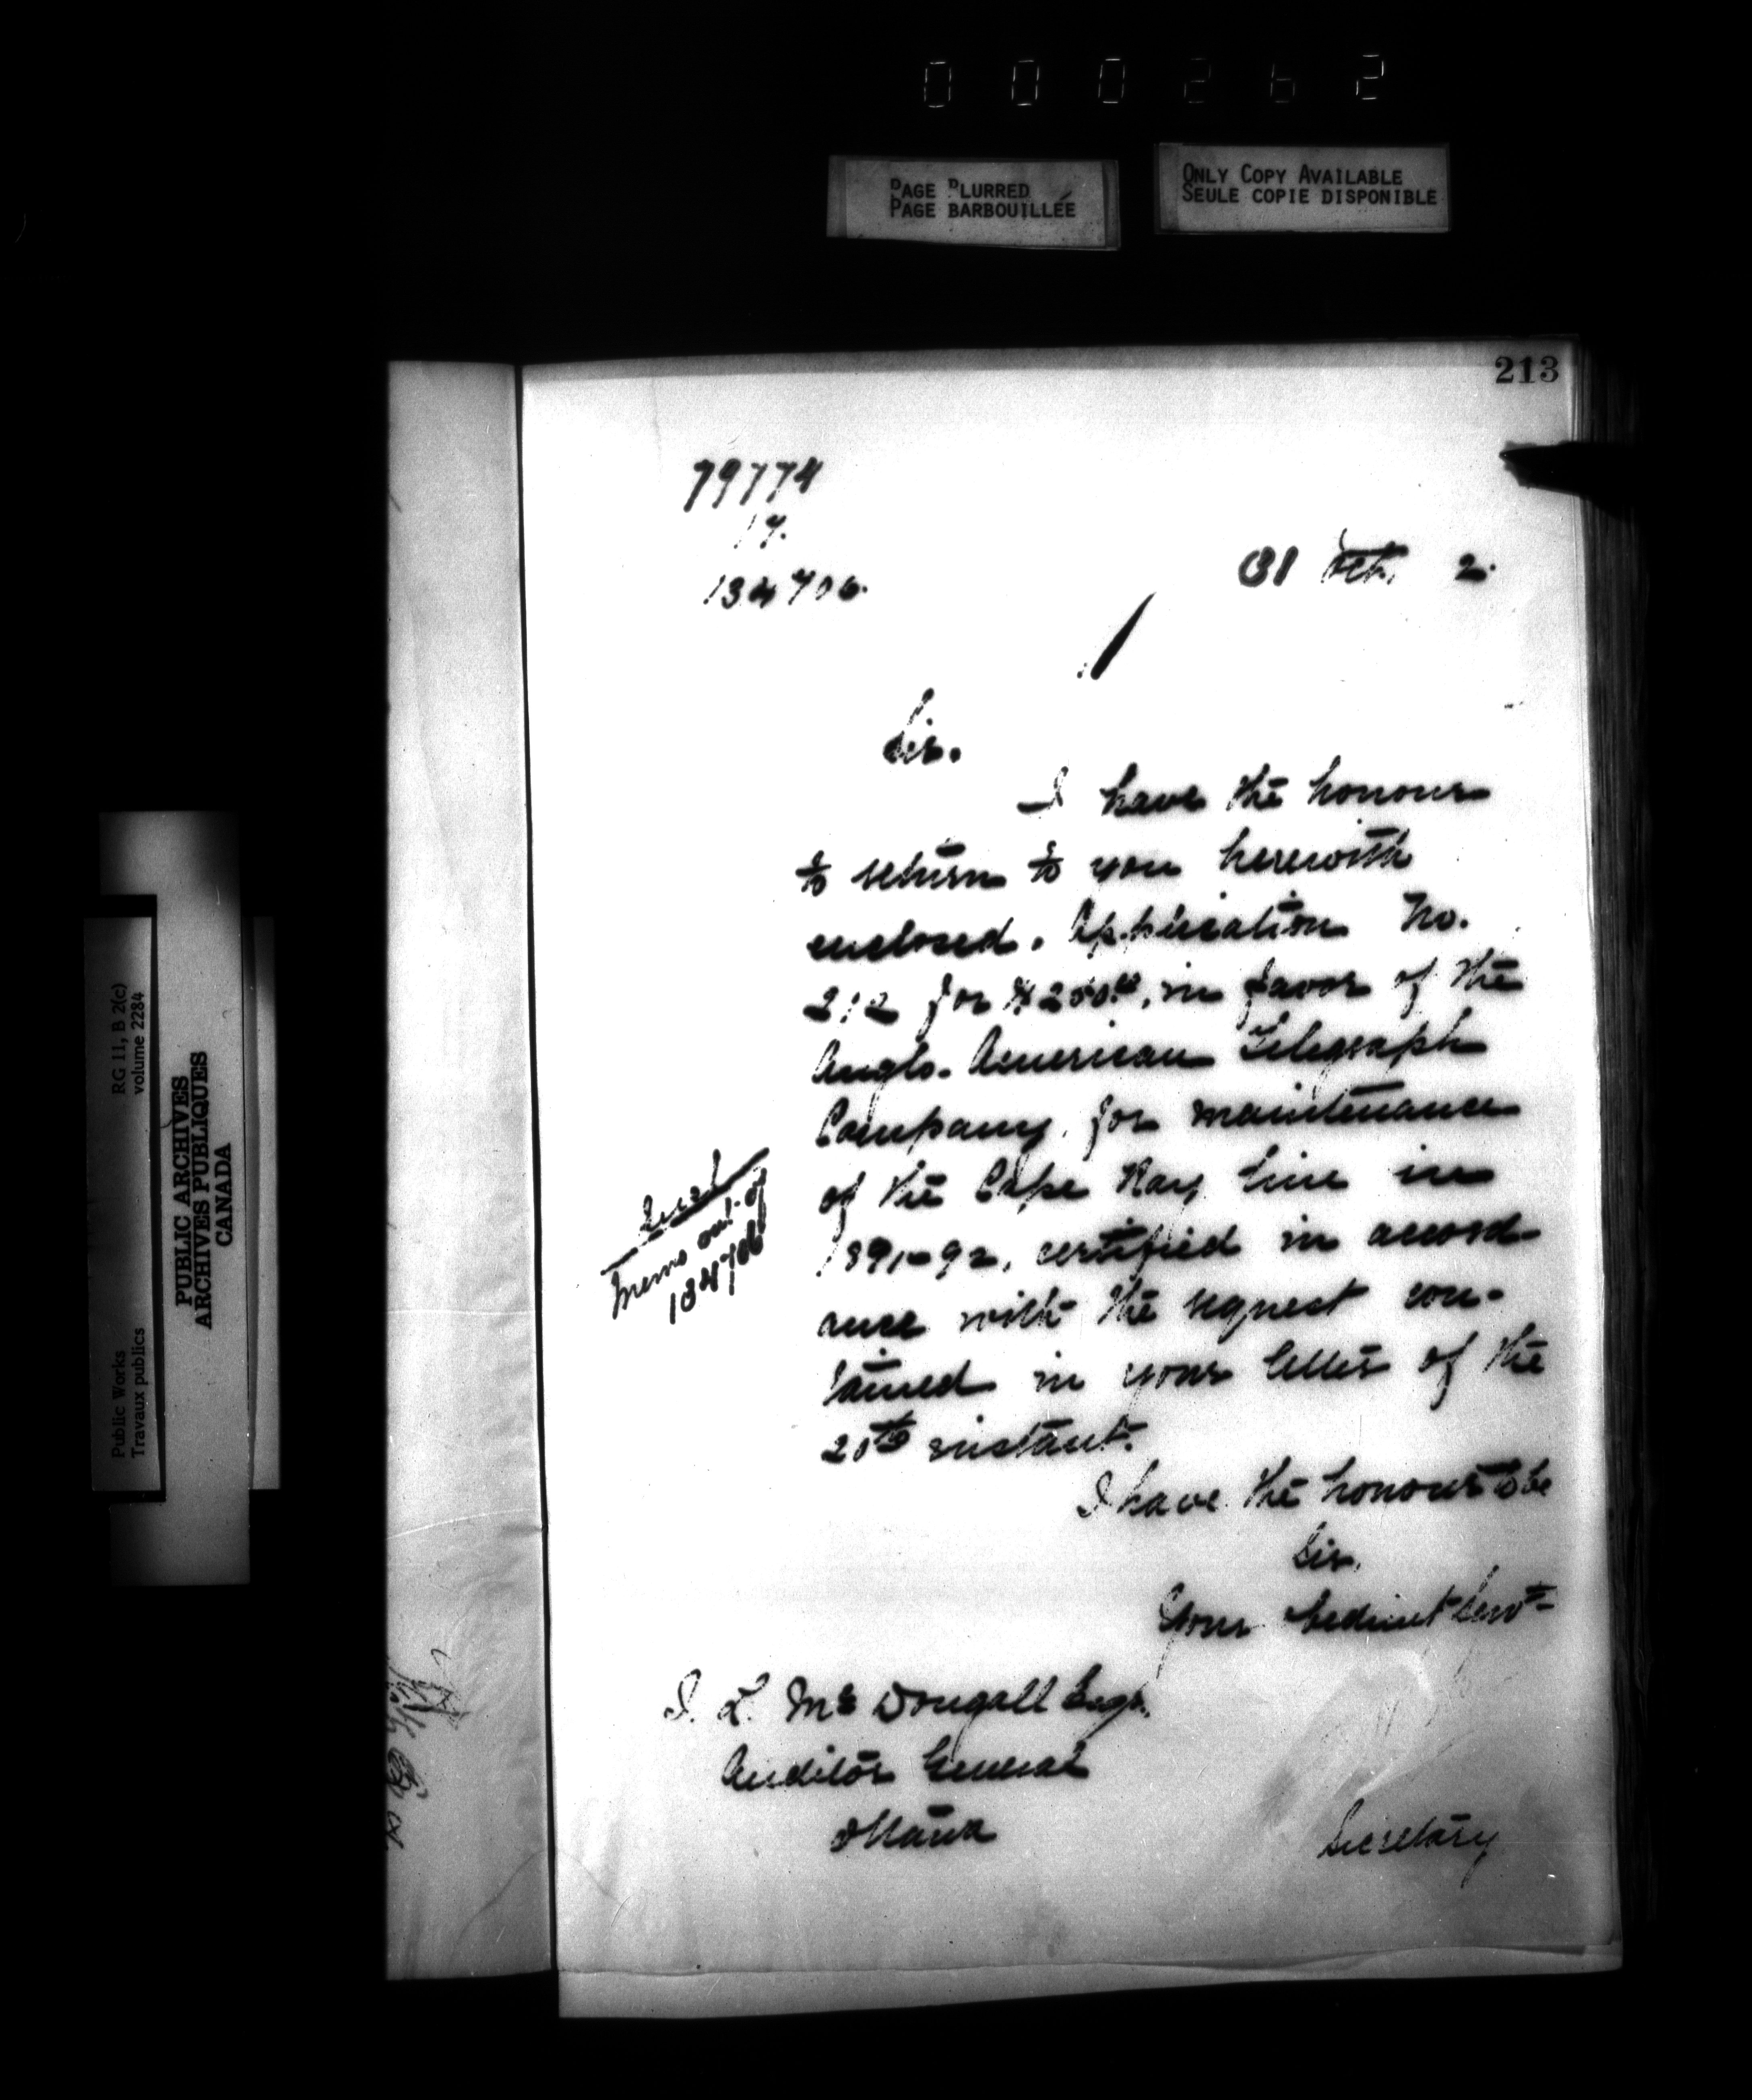 000262
PAGE BLURRED
PAGE BARBOUILLÉE
ONLY COPY AVAILABLE
SEULE COPIE DISPONIBLE
213
79774
17.
134706.
31 Oct. 2.
Sir.
I have the honour
to return to you herewith
enclosed, Application No.
212 for $250.00, in favor of the
Anglo-American Telegraph
Company, for maintenance
of the Cape Ray line in
1891-92, certified in accord-
ance with the request con-
tained in your letter of the
20th instant.
I have the honour to be
Sir,
Your obedient Servt
J. L. McDougall Esqr.
Auditor General
Ottawa
Secretary
Memo out of
134706
Public Works
Travaux publics
RG 11, B 2(c)
volume 2284
PUBLIC ARCHIVES
ARCHIVES PUBLIQUES
CANADA